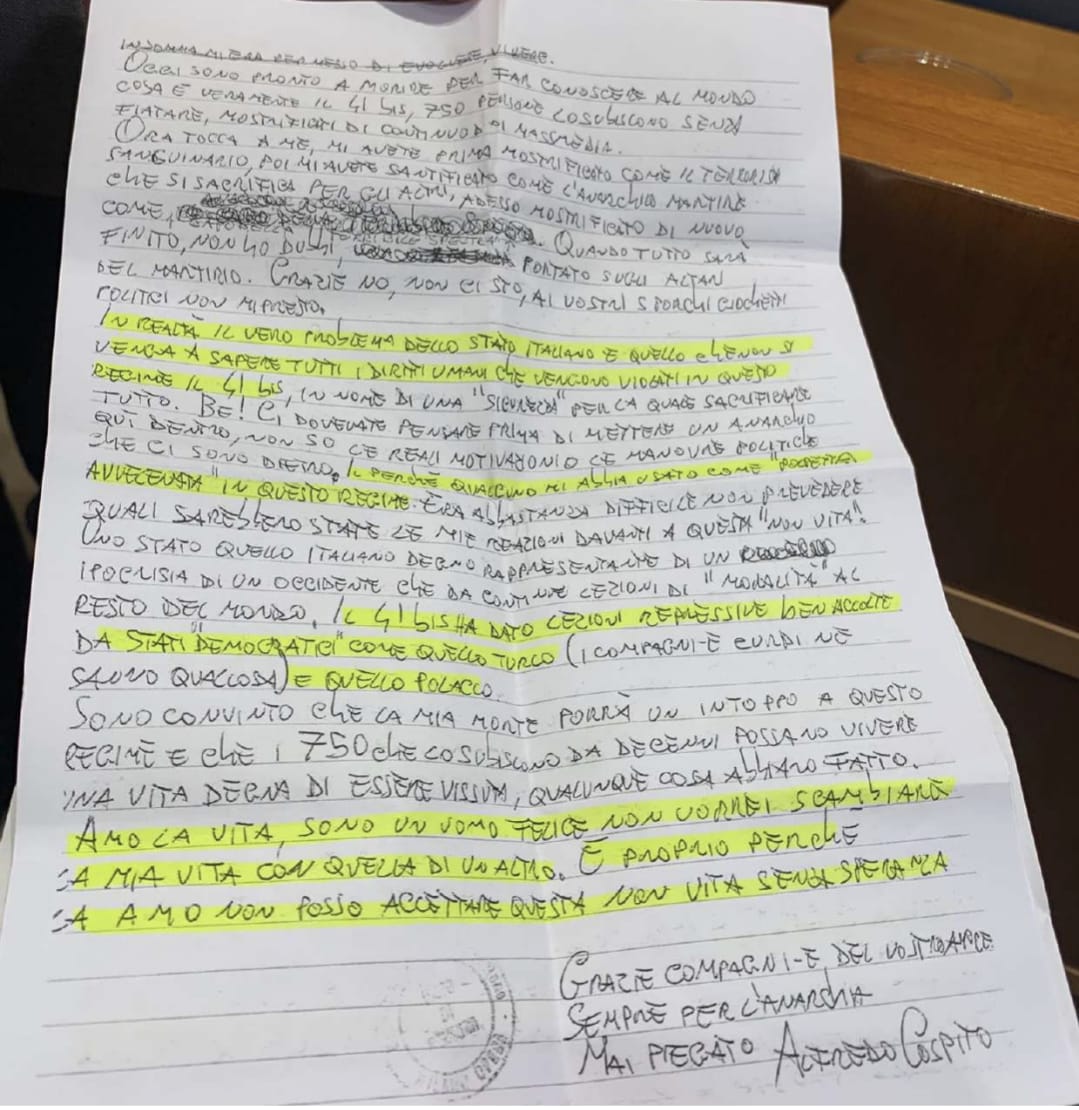 INSOMMA MI ERA PERMESSO DI EVOLVERE, VIVERE.
OGGI SONO PRONTO A MORIRE PER FAR CONOSCERE AL MONDO
COSA È VERAMENTE IL 41 BIS, 750 PERSONE LO SUBISCONO SENZA
FIATARE, MOSTRIFICATI DI CONTINUO DAI MASSMEDIA.
ORA TOCCA A ME, MI AVETE PRIMA MOSTRIFICATO COME IL TERRORISTA
SANGUINARIO, POI MI AVETE SANTIFICATO COME L'ANARCHICO MARTIRE
CHE SI SACRIFICA PER GLI ALTRI, ADESSO MOSTRIFICATO DI NUOVO
COME, SPECTRA. QUANDO TUTTO SARÀ
FINITO, NON HO DUBBI, PORTATO SUGLI ALTARI
DEL MARTIRIO. GRAZIE NO, NON CI STO, AI VOSTRI SPORCHI GIOCHETTI
POLITICI NON MI PRESTO.
IN REALTÀ IL VERO PROBLEMA DELLO STATO ITALIANO È QUELLO CHE NON SI
VENGA A SAPERE TUTTI I DIRITTI UMANI CHE VENGONO VIOLATI IN QUESTO
REGIME IL 41 BIS, IN NOME DI UNA "SICUREZZA" PER LA QUALE SACRIFICARE
TUTTO. BE! CI DOVEVATE PENSARE PRIMA DI METTERE UN ANARCHICO
QUI DENTRO, NON SO LE REALI MOTIVAZIONI O LE MANOVRE POLITICHE
CHE CI SONO DIETRO. IL PERCHÉ QUALCUNO MI ABBIA USATO COME "POLPETTA
AVVELENATA" IN QUESTO REGIME. ERA ABBASTANZA DIFFICILE NON PREVEDERE
QUALI SAREBBERO STATE LE MIE REAZIONI DAVANTI A QUESTA "NON VITA".
UNO STATO QUELLO ITALIANO DEGNO RAPPRESENTANTE DI UN
IPOCRISIA DI UN OCCIDENTE CHE DA CONTINUE LEZIONI DI "MORALITÀ" AL
RESTO DEL MONDO. IL 41 BIS HA DATO LEZIONI REPRESSIVE BEN ACCOLTE
DA STATI "DEMOCRATICI" COME QUELLO TURCO (I COMPAGNI-E CURDI NE
SANNO QUALCOSA) E QUELLO POLACCO.
SONO CONVINTO CHE LA MIA MORTE PORRÀ UN INTOPPO A QUESTO
REGIME E CHE I 750 CHE LO SUBISCONO DA DECENNI POSSANO VIVERE
UNA VITA DEGNA DI ESSERE VISSUTA, QUALUNQUE COSA ABBIANO FATTO.
AMO LA VITA, SONO UN UOMO FELICE NON VORREI SCAMBIARE
LA MIA VITA CON QUELLA DI UN ALTRO. E PROPRIO PERCHÉ
LA AMO NON POSSO ACCETTARE QUESTA NON VITA SENZA SPERANZA
GRAZIE COMPAGNI-E DEL VOSTRO AMORE
SEMPRE PER L'ANARCHIA
MAI PIEGATO ALFREDO COSPITO